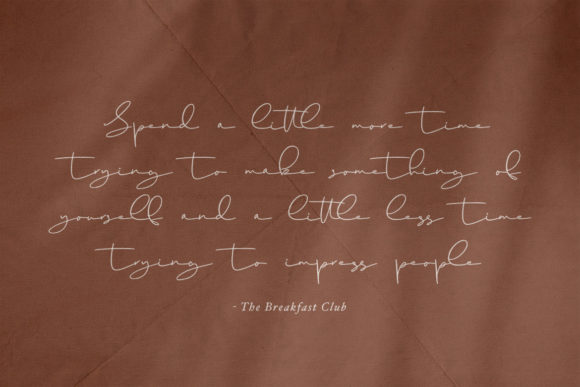 Spend a little more time
trying to make something of
yourself and a little less time
trying to impress people
- The Breakfast Club